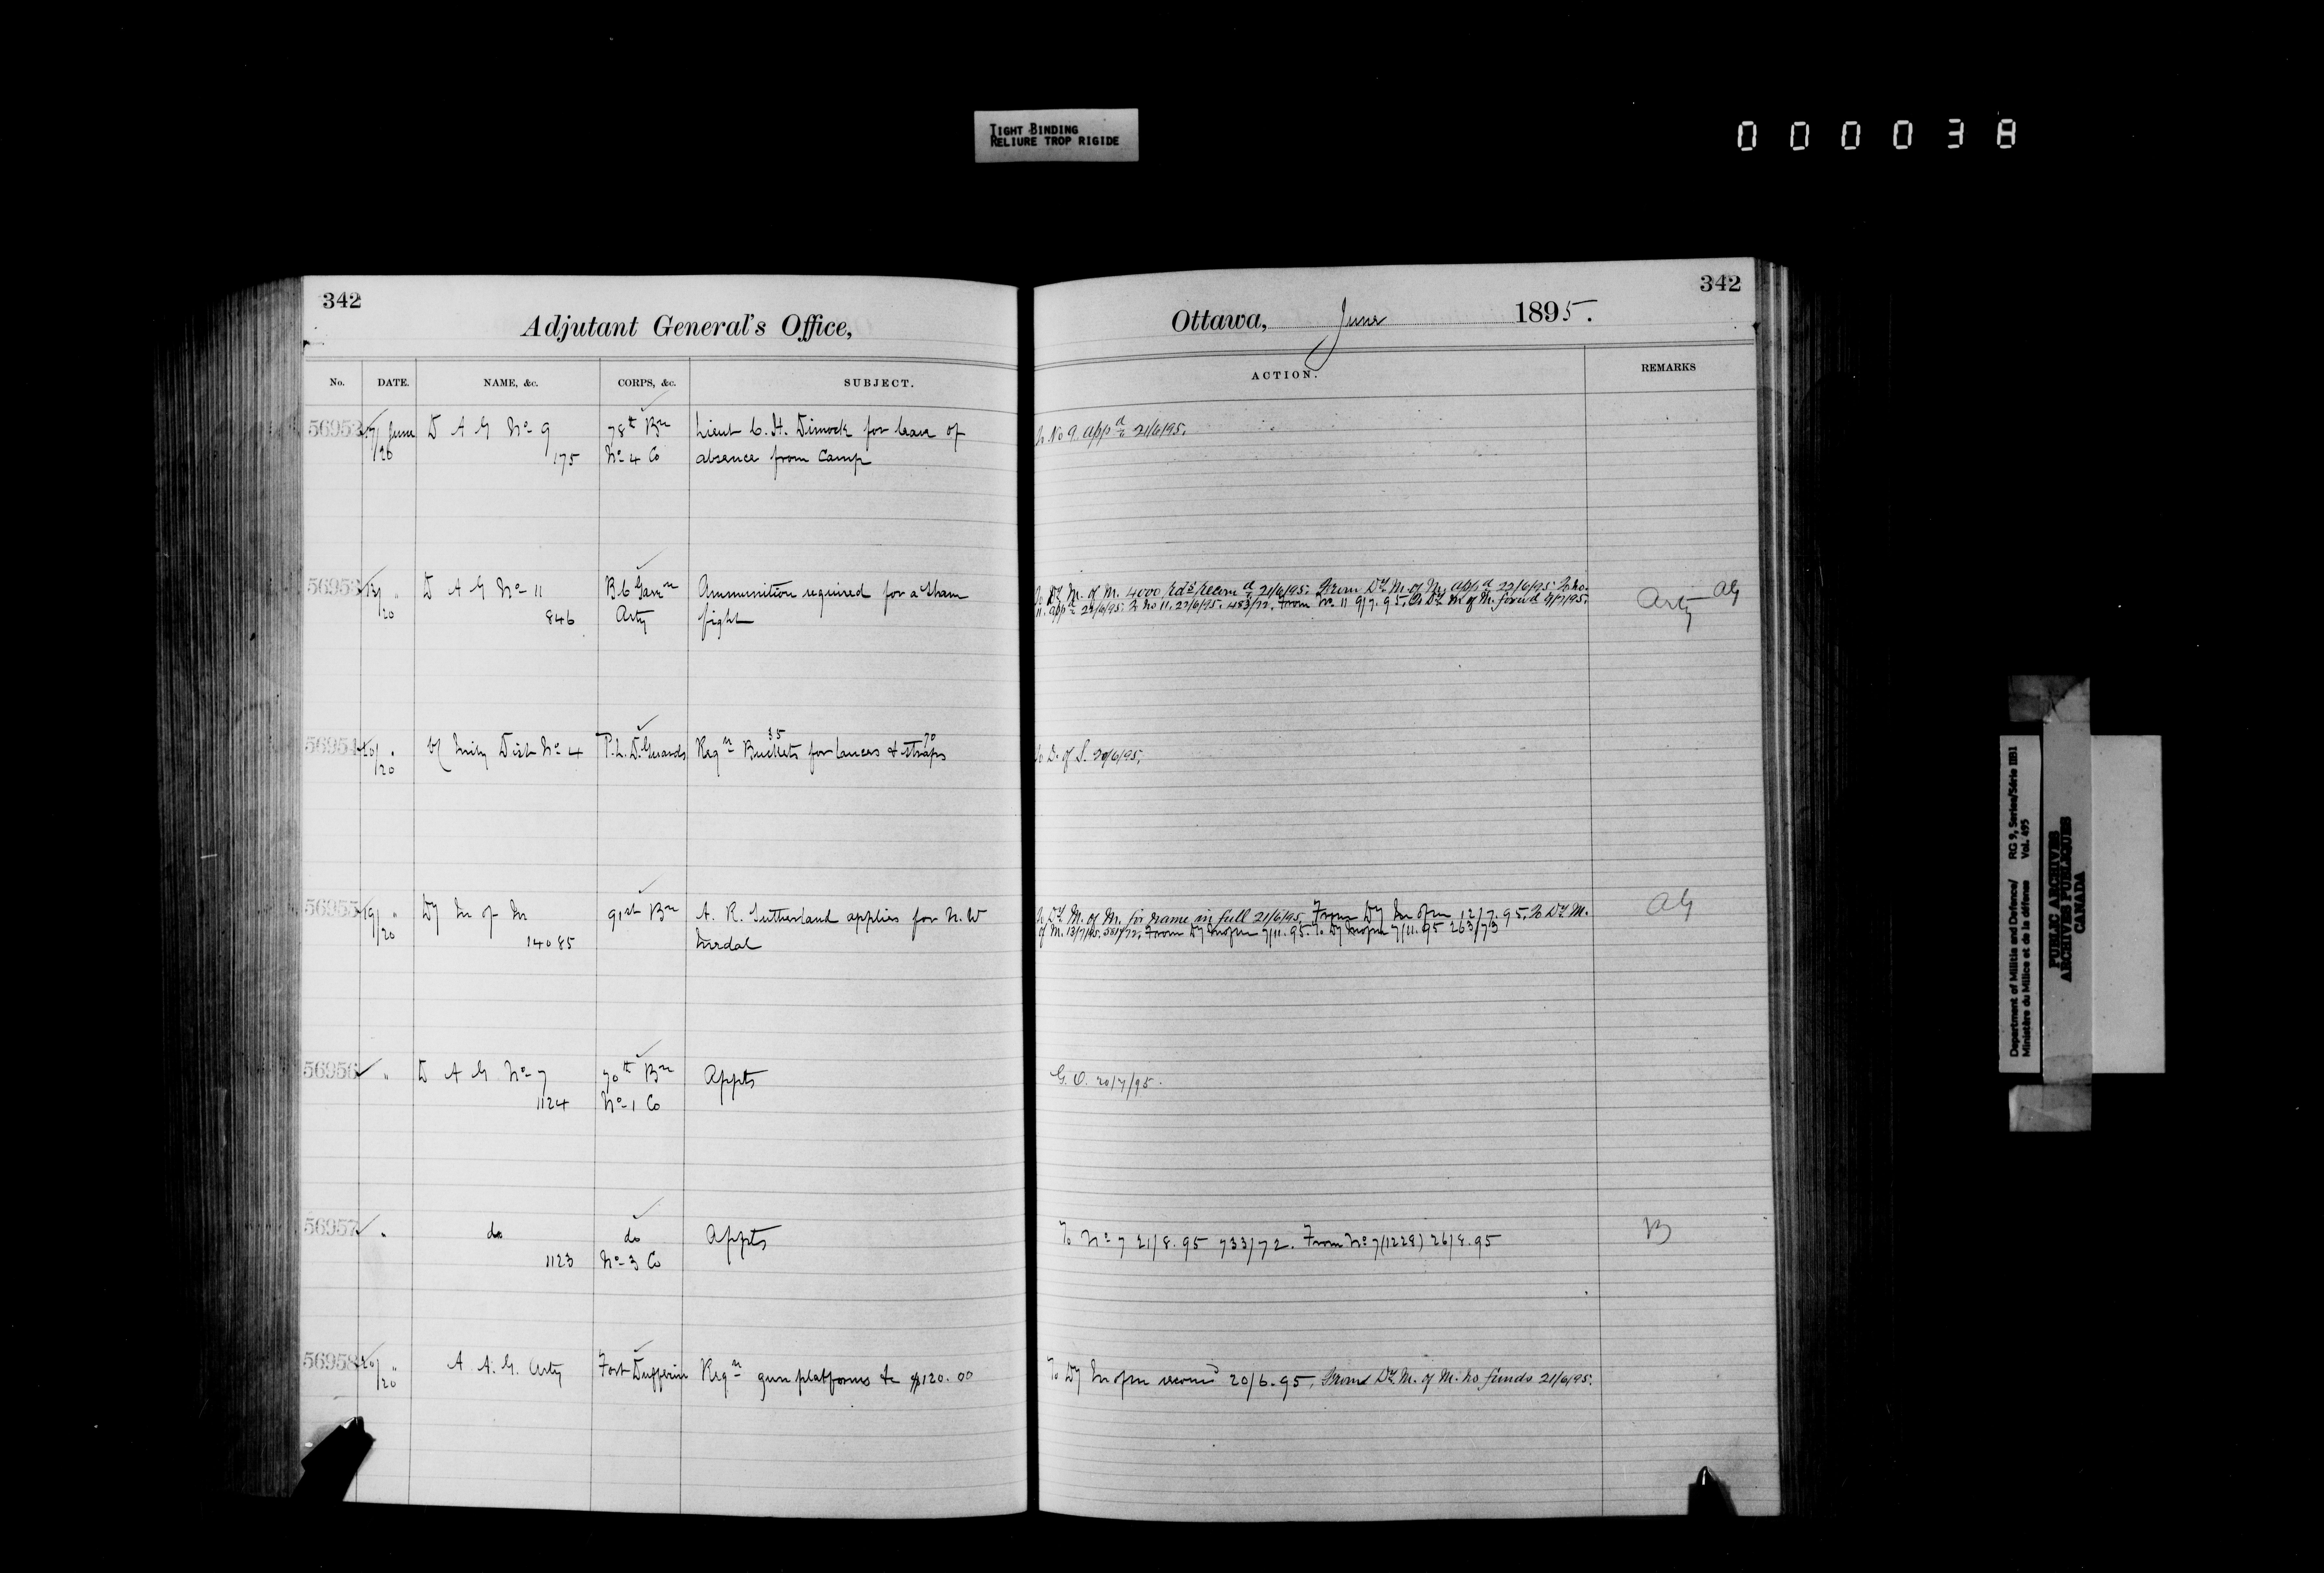 TIGHT BINDING
RELIURE TROP RIGIDE
000038
342
Adjutant General's Office,
No. DATE. NAME, &c. CORPS, &c. SUBJECT.
56952 17/ June D A G No 9 78th Bn Lieut C. H. Dimock for leave of
/20 175 No 4 Co absence from Camp
56953 13/ " D A G No 11 B.C. Garrn Ammunition required for a Sham
/20 846 Arty fight
35 70
56954 20/ " Dist No 4 P.L.D. Guards Reqn Buckets for lances & straps
/20
56955 19/ " Dy M of M 91st Bn A. R. Sutherland applies for N.W
/20 14085 Medal
56956 " D A G No 7 70th Bn Appts
1124 No 1 Co
56957 " do do Appts
1123 No 3 Co
56958 20/ " A A. G. Arty Fort Dufferin Reqn gun platforms &c $120.00
/20
342
Ottawa, June 1895.
ACTION. REMARKS
To No 9. appd 21/6/95.
To Dy. M. of M. 4000 rds recomd 21/6/95. From Dy M. of M. appd 22/6/95. To No. Arty AG
11. appd 22/6/95. To No 11. 22/6/95. 483/72. From No. 11 9/7.95. To Dy. M of M. forwd 9/7/95.
To D. of S. 20/6/95.
To Dy. M. of M. for name in full 21/6/95. From Dy M of M 12/7.95. To Dy M. AG
of M. 13/7/95. 581/72. From Dy M of M 7/11.95. To Dy M of M 7/11.95 263/73
G. O. 20/7/95.
To No 7 21/8.95 733/72. From No 7 (1228) 26/8.95 B
To Dy M of M recomd 20/6.95, From Dy. M. of M. no funds 21/6/95.
Department of Militia and Defence/ RG 9, Series/Série IIB1
Ministère du Milice et de la défense Vol. 495
PUBLIC ARCHIVES
ARCHIVES PUBLIQUES
CANADA